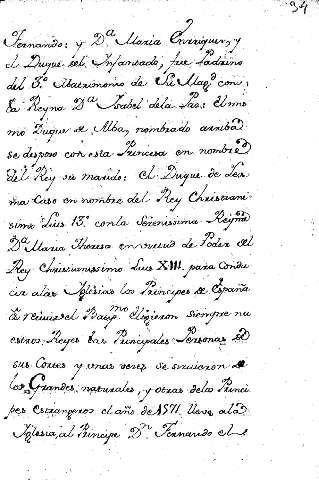 34
Fernando: y Dª Maria Enrriquez, y
el Duque del Infantado, fue Padrino
del 3º Matrimonio de Su Magd con
la Reyna Dª Isabel dela Paz: El mis
mo Duque de Alba, nombrado arriba
se desposo con esta Princesa en nombre
del Rey su marido: El Duque de Ler
ma Caso en nombre del Rey Christiani
simo Luis 13º con la Serenissima Reyna
Dª Maria Theresa en virtud de Poder del
Rey Christianissimo Luis XIII. para condu
cir alas Iglesias los Principes de España
à recivir el Baupmo eligieron siempre nu
estros Reyes las Principales Personas de
sus Cortes y unas veces se sirvieron de
los Grandes naturales, y otras delos Princi
pes estrangeros el año de 1571. llevo ala
Iglesia, al Principe Dn Fernando el